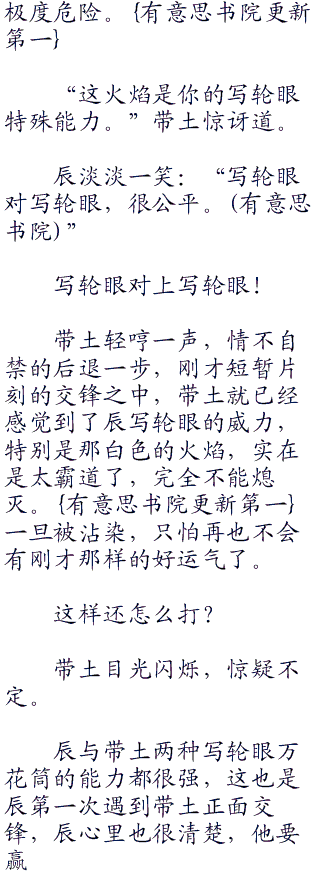 极度危险。{有意思书院更新
第一}
“这火焰是你的写轮眼
特殊能力。”带土惊讶道。
辰淡淡一笑：“写轮眼
对写轮眼，很公平。(有意思
书院)”
写轮眼对上写轮眼！
带土轻哼一声，情不自
禁的后退一步，刚才短暂片
刻的交锋之中，带土就已经
感觉到了辰写轮眼的威力，
特别是那白色的火焰，实在
是太霸道了，完全不能熄
灭。{有意思书院更新第一}
一旦被沾染，只怕再也不会
有刚才那样的好运气了。
这样还怎么打？
带土目光闪烁，惊疑不
定。
辰与带土两种写轮眼万
花筒的能力都很强，这也是
辰第一次遇到带土正面交
锋，辰心里也很清楚，他要
赢